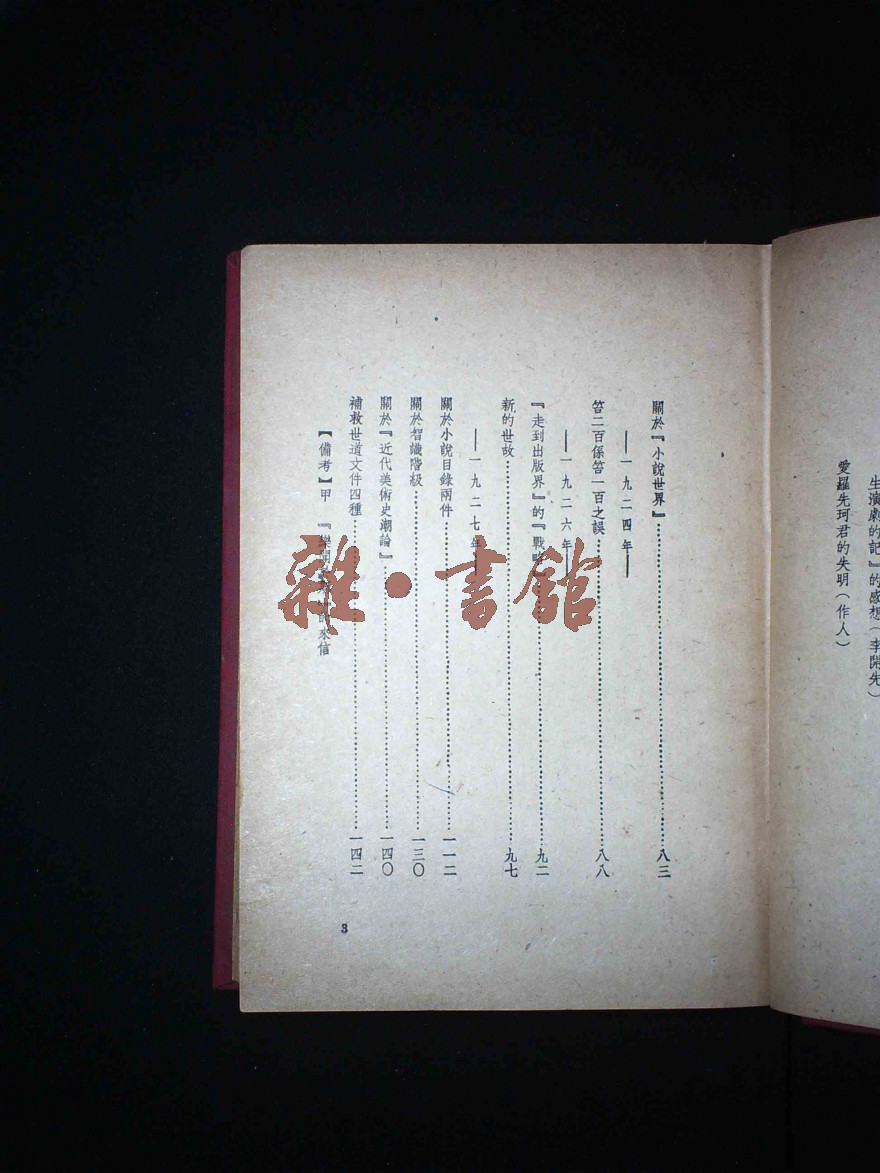 生演劇的記』的感想(李開先)
愛羅先珂君的失明(作人)
關於『小說世界』……八三
——一九二四年——
笞二百係笞一百之誤……八八
——一九二六年——
『走到出版界』的『戰略……九二
新的世故……九七
——一九二七年
關於小說目錄兩件……一一二
關於智識階級……一三〇
關於『近代美術史潮論』……一四〇
補救世道文件四種……一四二
【備考】甲 『樂聞 來信
3
雜·書館